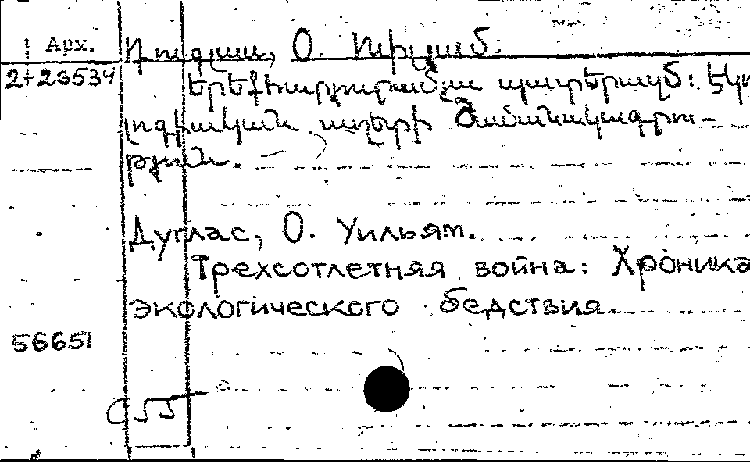 Арх. Դուգլաս, Օ. Ուիլյամ.
2+26534 Երեքհարյուրամյա պատերազմ: Էկո
լոգիական աղետի ժամանակագրու-
թյուն.
Дуглас, О. Уильям.
Трехсотлетняя война: Хроника
экологического бедствия
56651
C55